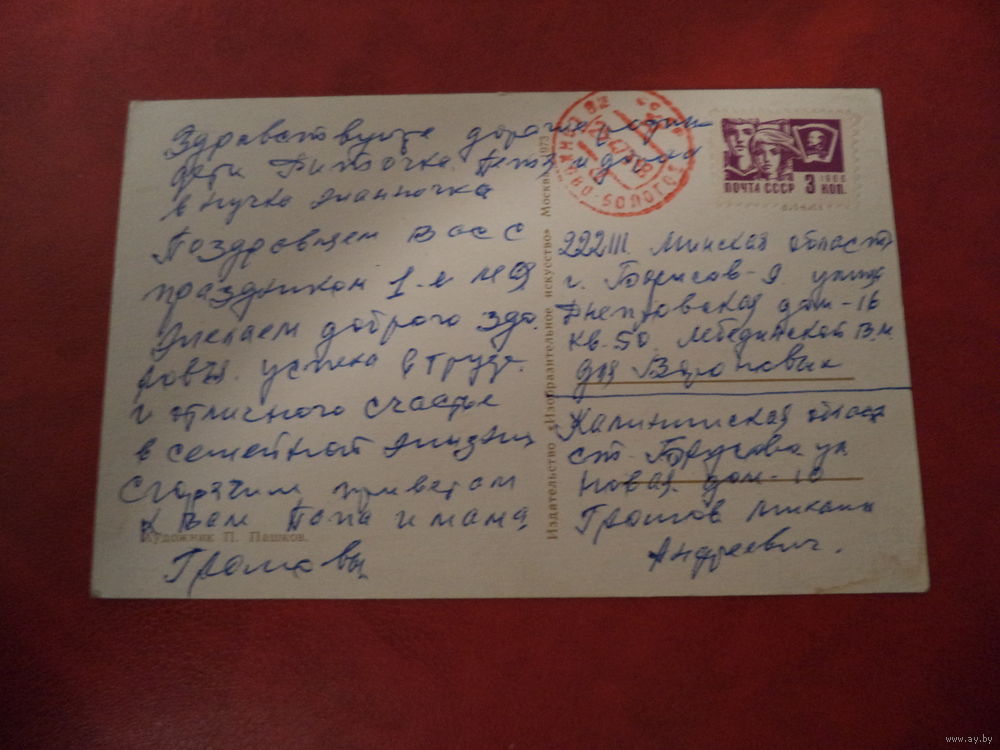 Здравствуйте дорогие
дети Риточка Петя и дочка
внучка Жанночка
Поздровляем Вас с
праздником 1-е мая
Желаем доброго здо
ровья. успеха в труде.
и отличного счастье
в семейной жизни
сгорячим приветом
к Вам Папа и мама
Громовы
Художник П. Пашков.
Издательство «Изобразительное искусство» Москва 1973
ПОЧТА СССР 3 КОП.
1966
222111. Минская область
г. Борисов-9. улица
Днепровская дом-16
кв. 50. Лебединской В.м.
для Вороновых
Калининская област
ст. Брусово ул
Новая. дом-10
Громов михаил
Андреевич.
www.ay.by